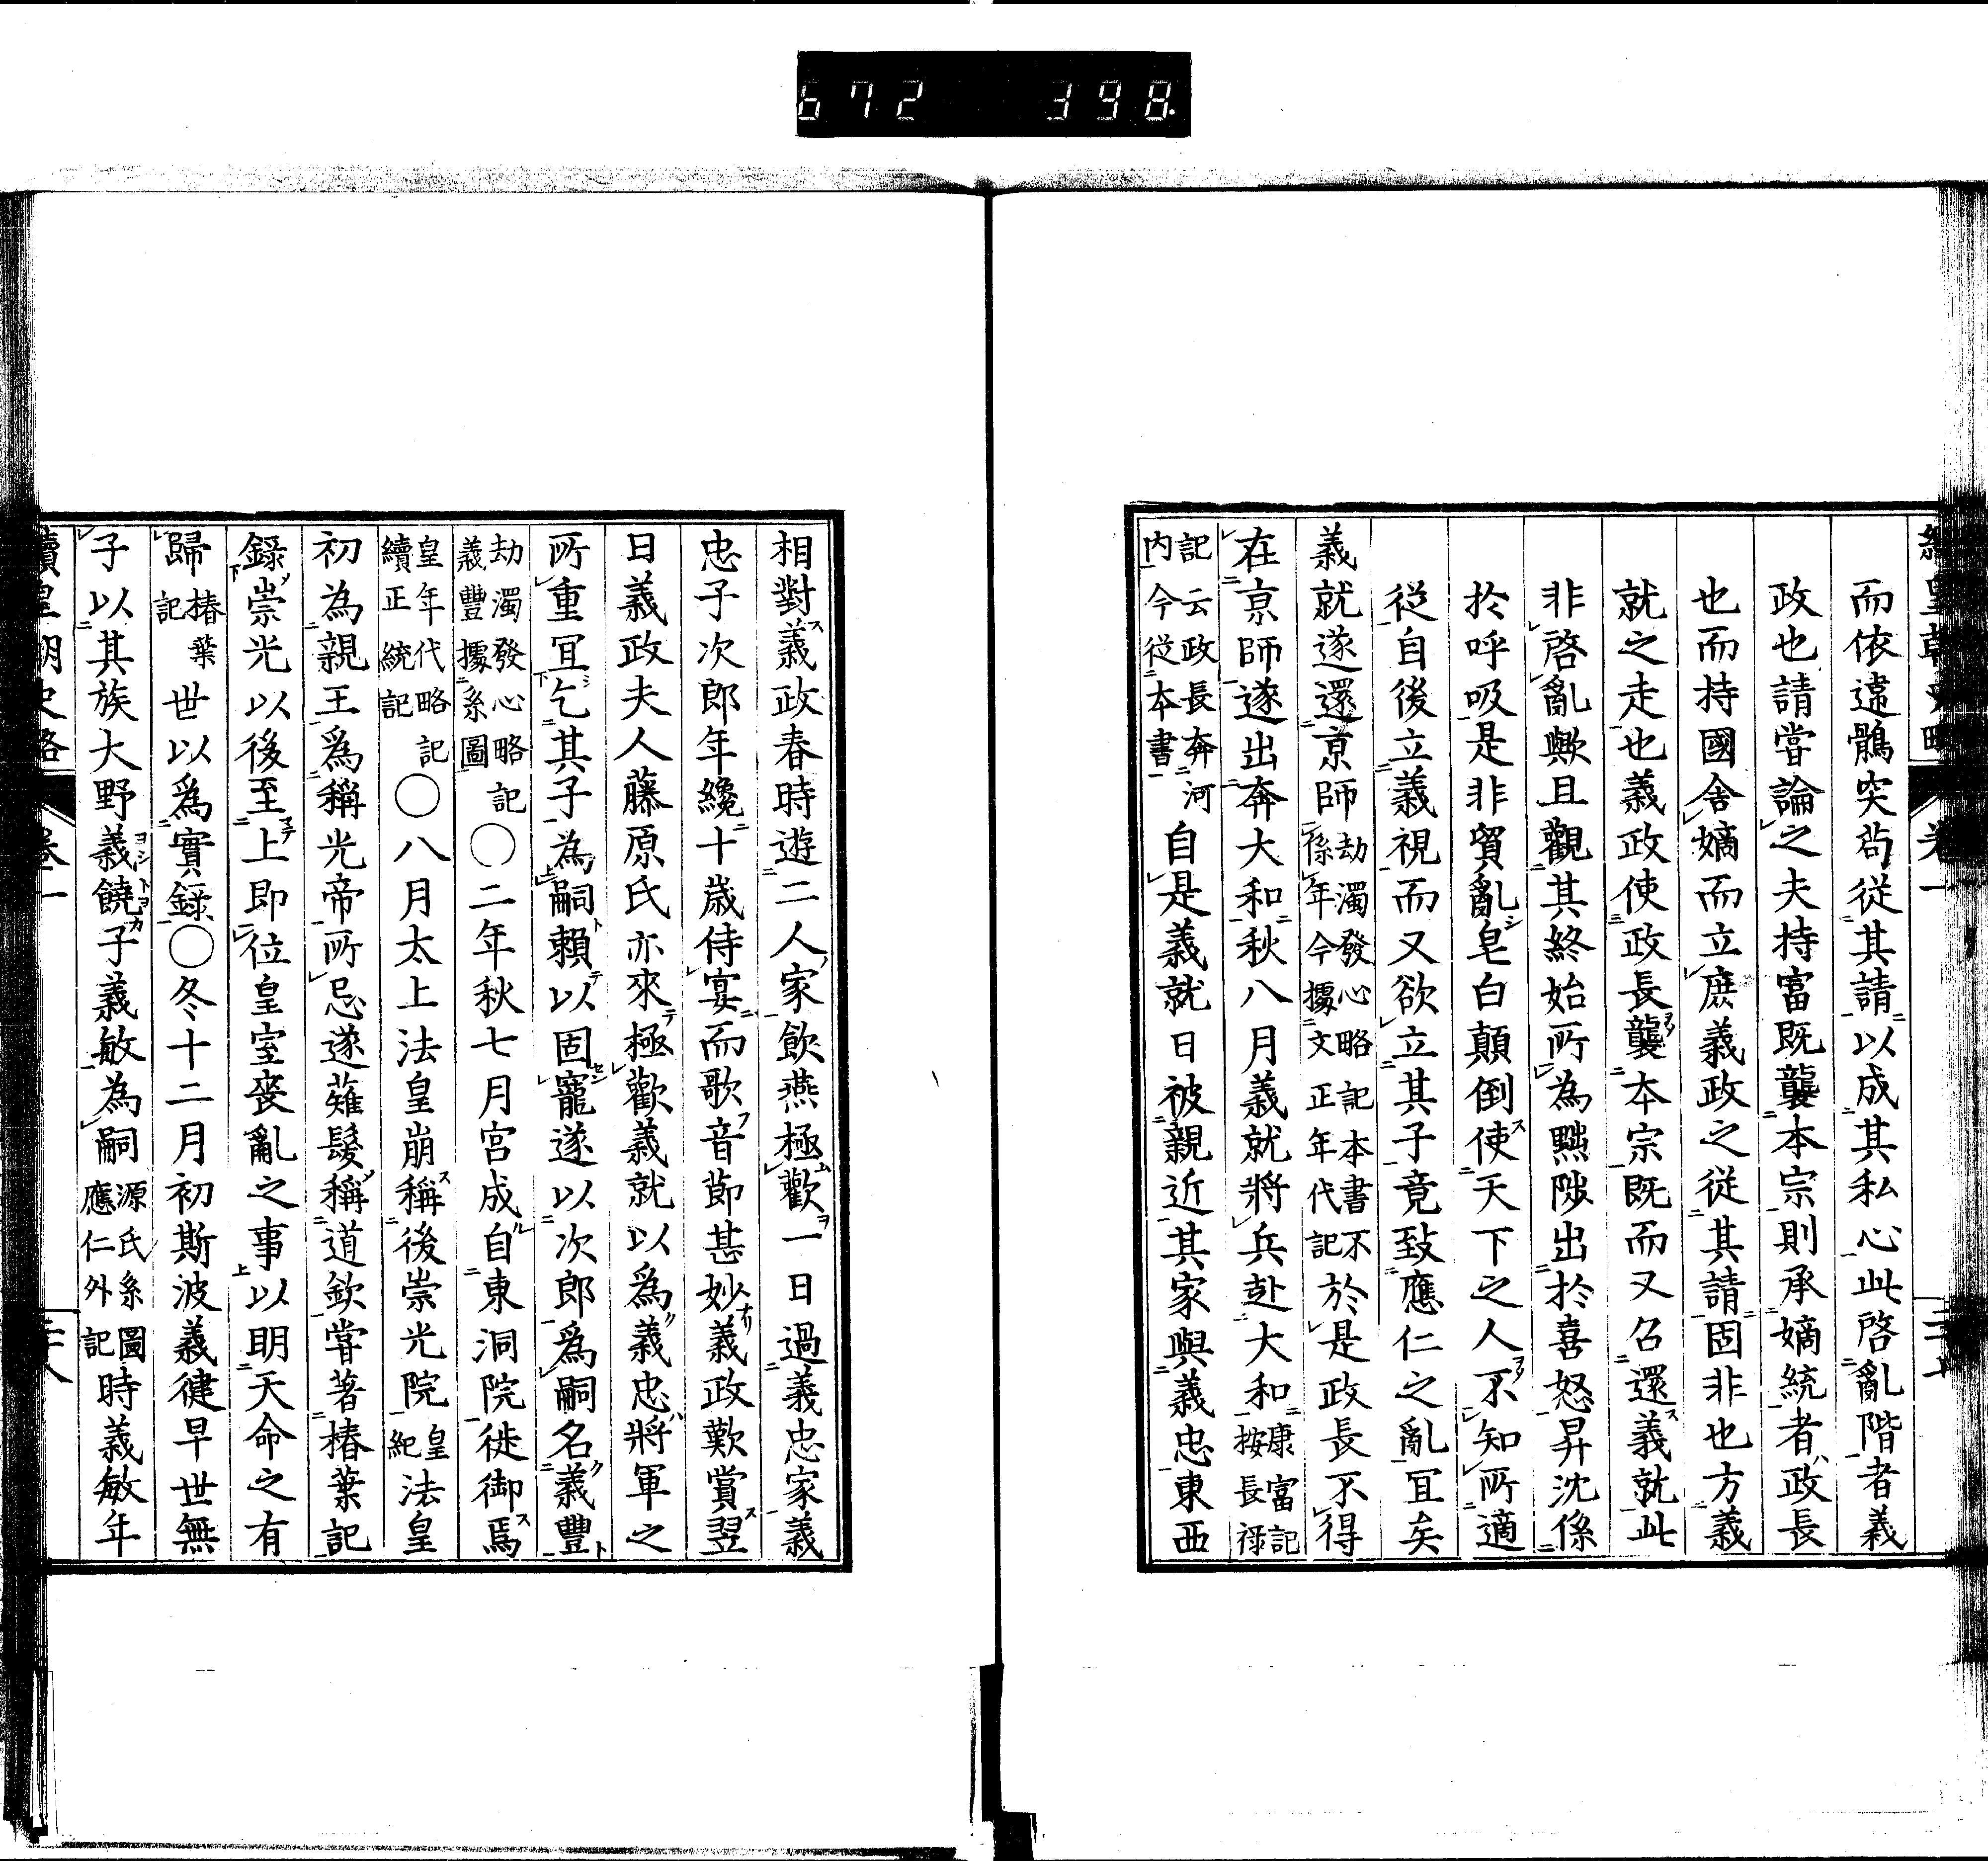 672 398.
續皇朝史略 卷一
而依違鶻突苟從其請以成其私心此啓亂階者義
政也請嘗論之夫持富既襲本宗則承嫡統者政長
也而持國舍嫡而立庶義政之從其請固非也方義
就之走也義政使政長襲本宗既而又召還義就此
非啓亂歟且觀其終始所為黜陟出於喜怒昇沈係
於呼吸是非貿亂皂白顛倒使天下之人不知所適
從自後立義視而又欲立其子竟致應仁之亂宜矣
義就遂還京師劫濁發心略記本書不係年今據文正年代記於是政長不得
在京師遂出奔大和秋八月義就將兵赴大和康富記按長祿
記云政長奔河内今從本書自是義就日被親近其家與義忠東西
相對義政春時遊二人家飲燕極歡一日過義忠家義
忠子次郎年纔十歲侍宴而歌音節甚妙義政歎賞翌
日義政夫人藤原氏亦來極歡義就以為義忠將軍之
所重宜乞其子為嗣賴以固寵遂以次郎爲嗣名義豐
劫濁發心略記義豐據系圖〇二年秋七月宮成自東洞院徙御焉
皇年代略記續正統記〇八月太上法皇崩稱後崇光院皇紀法皇
初為親王爲稱光帝所忌遂薙髮稱道欽嘗著椿葉記
錄崇光以後至上即位皇室喪亂之事以明天命之有
歸椿葉記世以爲實錄〇冬十二月初斯波義健早世無
子以其族大野義饒子義敏為嗣源氏系圖應仁外記時義敏年
續皇朝史略 卷一 二十八